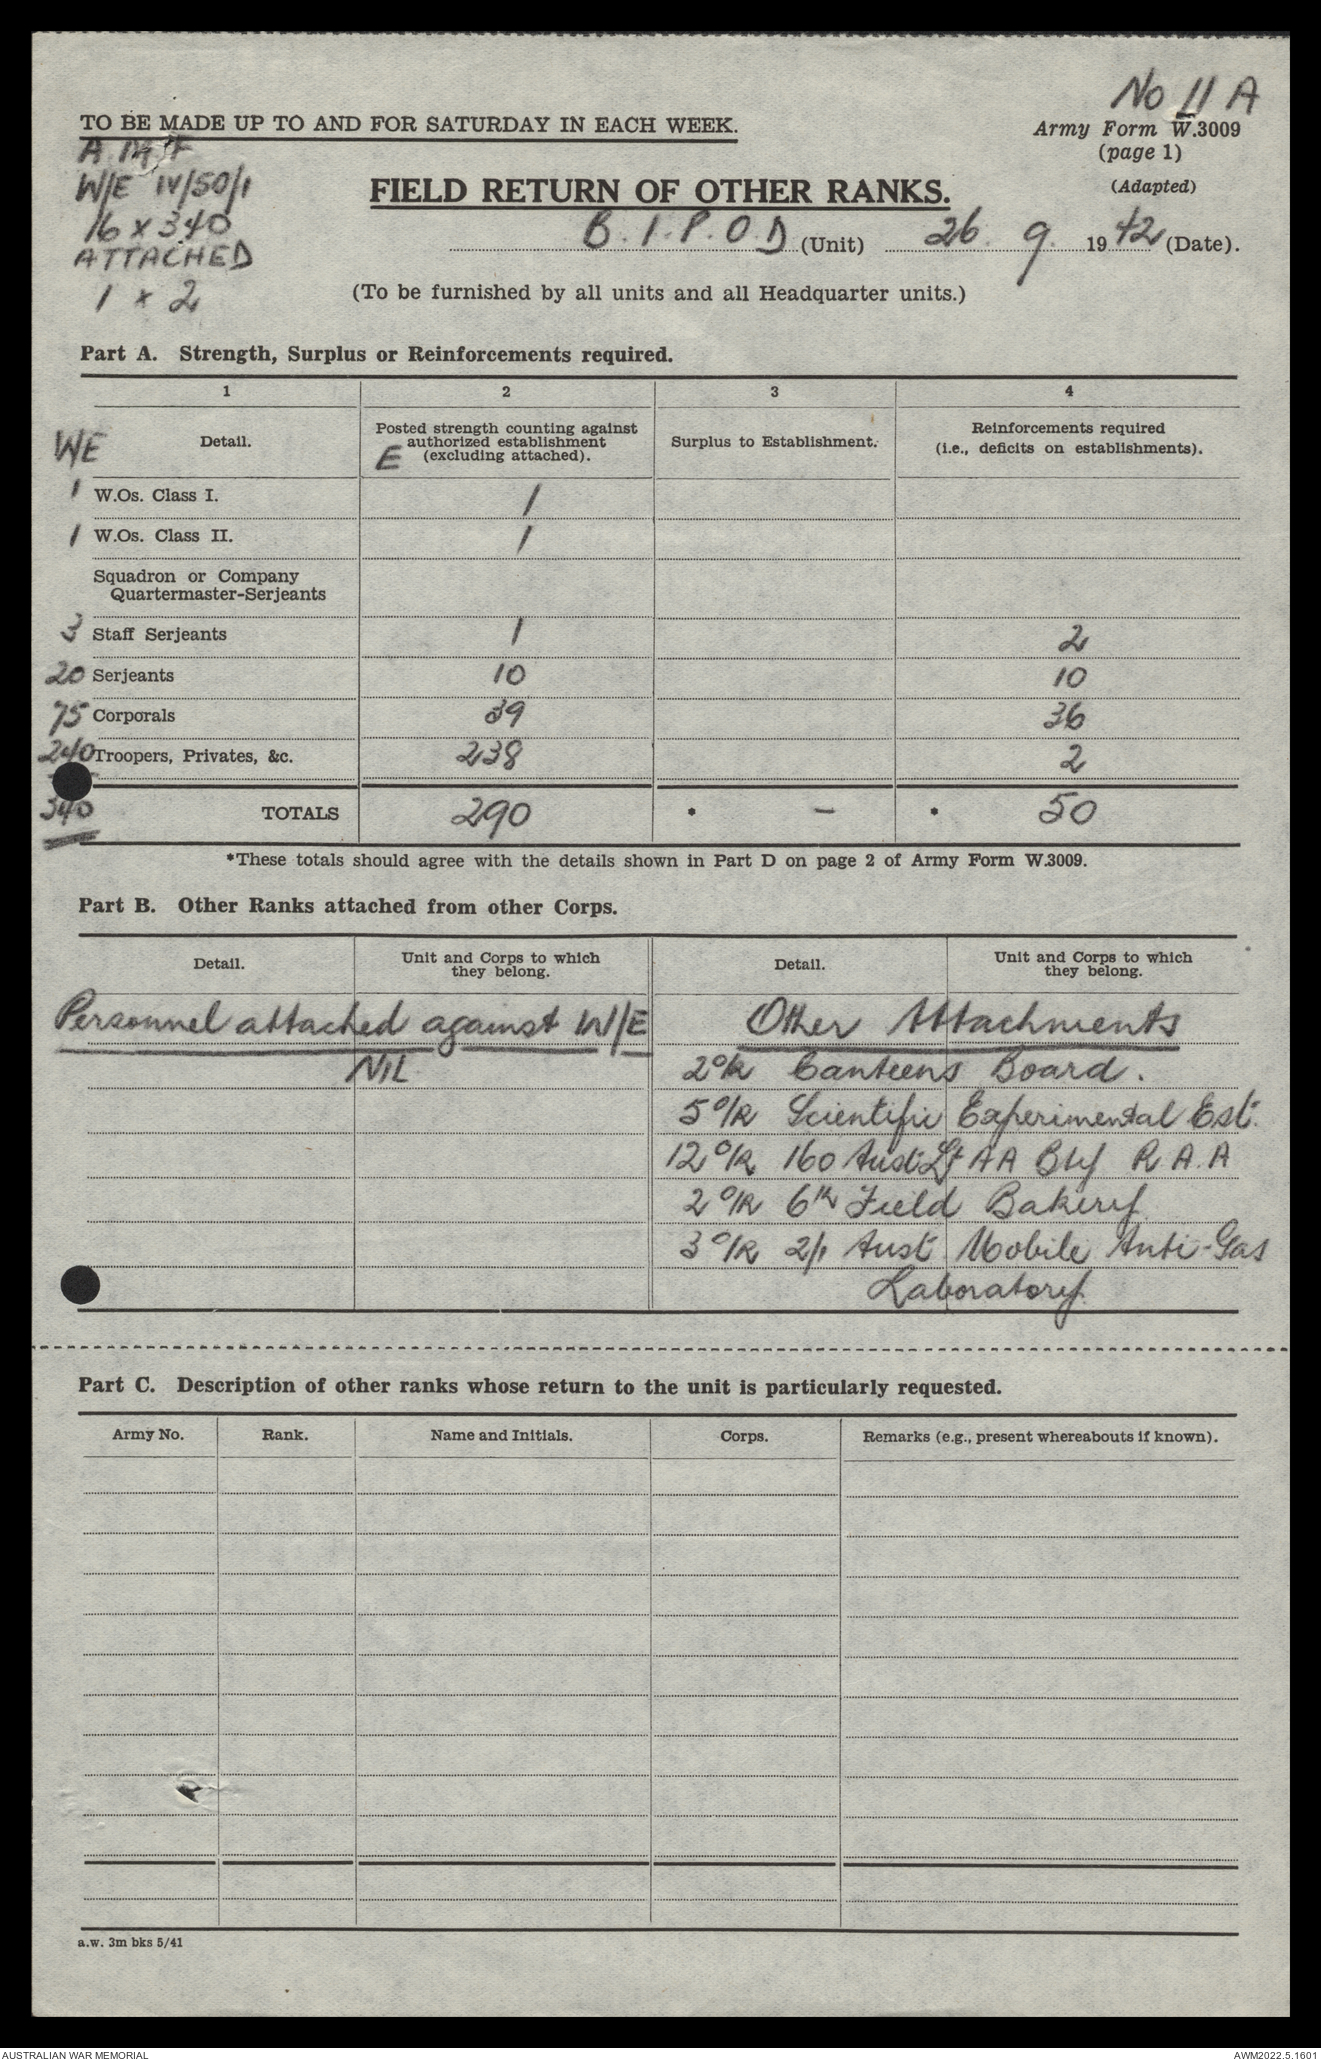 No 11 A
TO BE MADE UP TO AND FOR SATURDAY IN EACH WEEK.
Army Form W.3009
(page 1)
(Adapted)
A.M.F
W/E IV/50/1
16 x 340
ATTACHED
1 x 2
FIELD RETURN OF OTHER RANKS.
B.I.P.O.D (Unit) 26. 9. 1942 (Date).
(To be furnished by all units and all Headquarter units.)
Part A. Strength, Surplus or Reinforcements required.
1 2 3 4
WE Detail.
Posted strength counting against
authorized establishment
E (excluding attached).
Surplus to Establishment.
Reinforcements required
(i.e., deficits on establishments).
1 W.Os. Class I. 1
1 W.Os. Class II. 1
Squadron or Company
Quartermaster-Serjeants
3 Staff Serjeants 1 2
20 Serjeants 10 10
75 Corporals 39 36
240 Troopers, Privates, &c. 238 2
340 TOTALS 290 * — * 50
*These totals should agree with the details shown in Part D on page 2 of Army Form W.3009.
Part B. Other Ranks attached from other Corps.
Detail.
Unit and Corps to which
they belong.
Detail.
Unit and Corps to which
they belong.
Personnel attached against W/E
NIL
Other Attachments
2 o/R Canteens Board.
5 o/R Scientific Experimental Est.
12 o/R 160 Aust Lt AA Bty R.A.A
2 o/R 6th Field Bakery
3 o/R 2/1 Aust Mobile Anti-Gas
Laboratory.
Part C. Description of other ranks whose return to the unit is particularly requested.
Army No. Rank. Name and Initials. Corps. Remarks (e.g., present whereabouts if known).
a.w. 3m bks 5/41
AUSTRALIAN WAR MEMORIAL AWM2022.5.1601